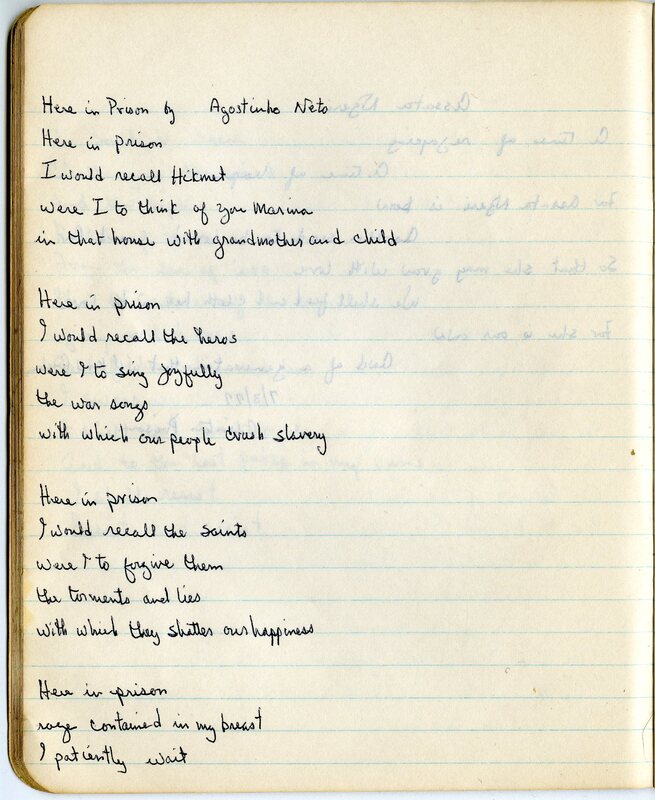 Here in Prison by Agostinho Neto
Here in prison
I would recall Hikmet
were I to think of you Marina
in that house with grandmother and child
Here in prison
I would recall the heros
were I to sing joyfully
the war songs
with which our people crush slavery
Here in prison
I would recall the saints
were I to forgive them
the torments and lies
with which they shatter our happiness
Here in prison
rage contained in my breast
I patiently wait